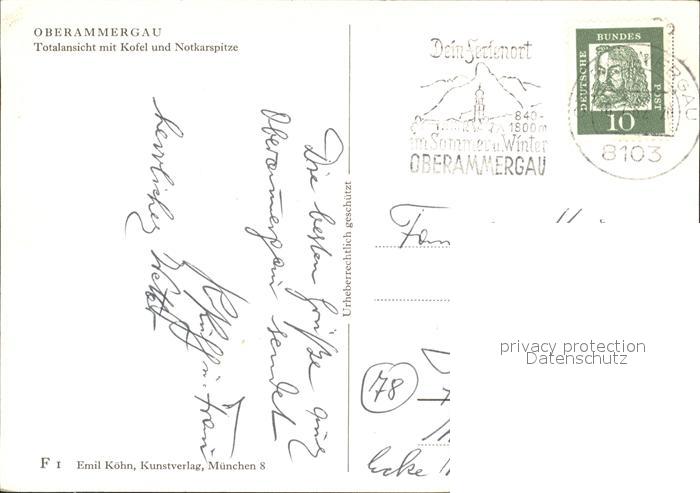 OBERAMMERGAU
Totalansicht mit Kofel und Notkarspitze
Dein Ferienort
840-
1800m
im Sommer u. Winter
OBERAMMERGAU
DEUTSCHE
BUNDES
POST
10
8103
Die besten Grüße aus
Oberammergau sendet
u. Frau
herrliches Wetter
Urheberrechtlich geschützt
Fam
78
Ecke
privacy protection
Datenschutz
F 1 Emil Köhn, Kunstverlag, München 8